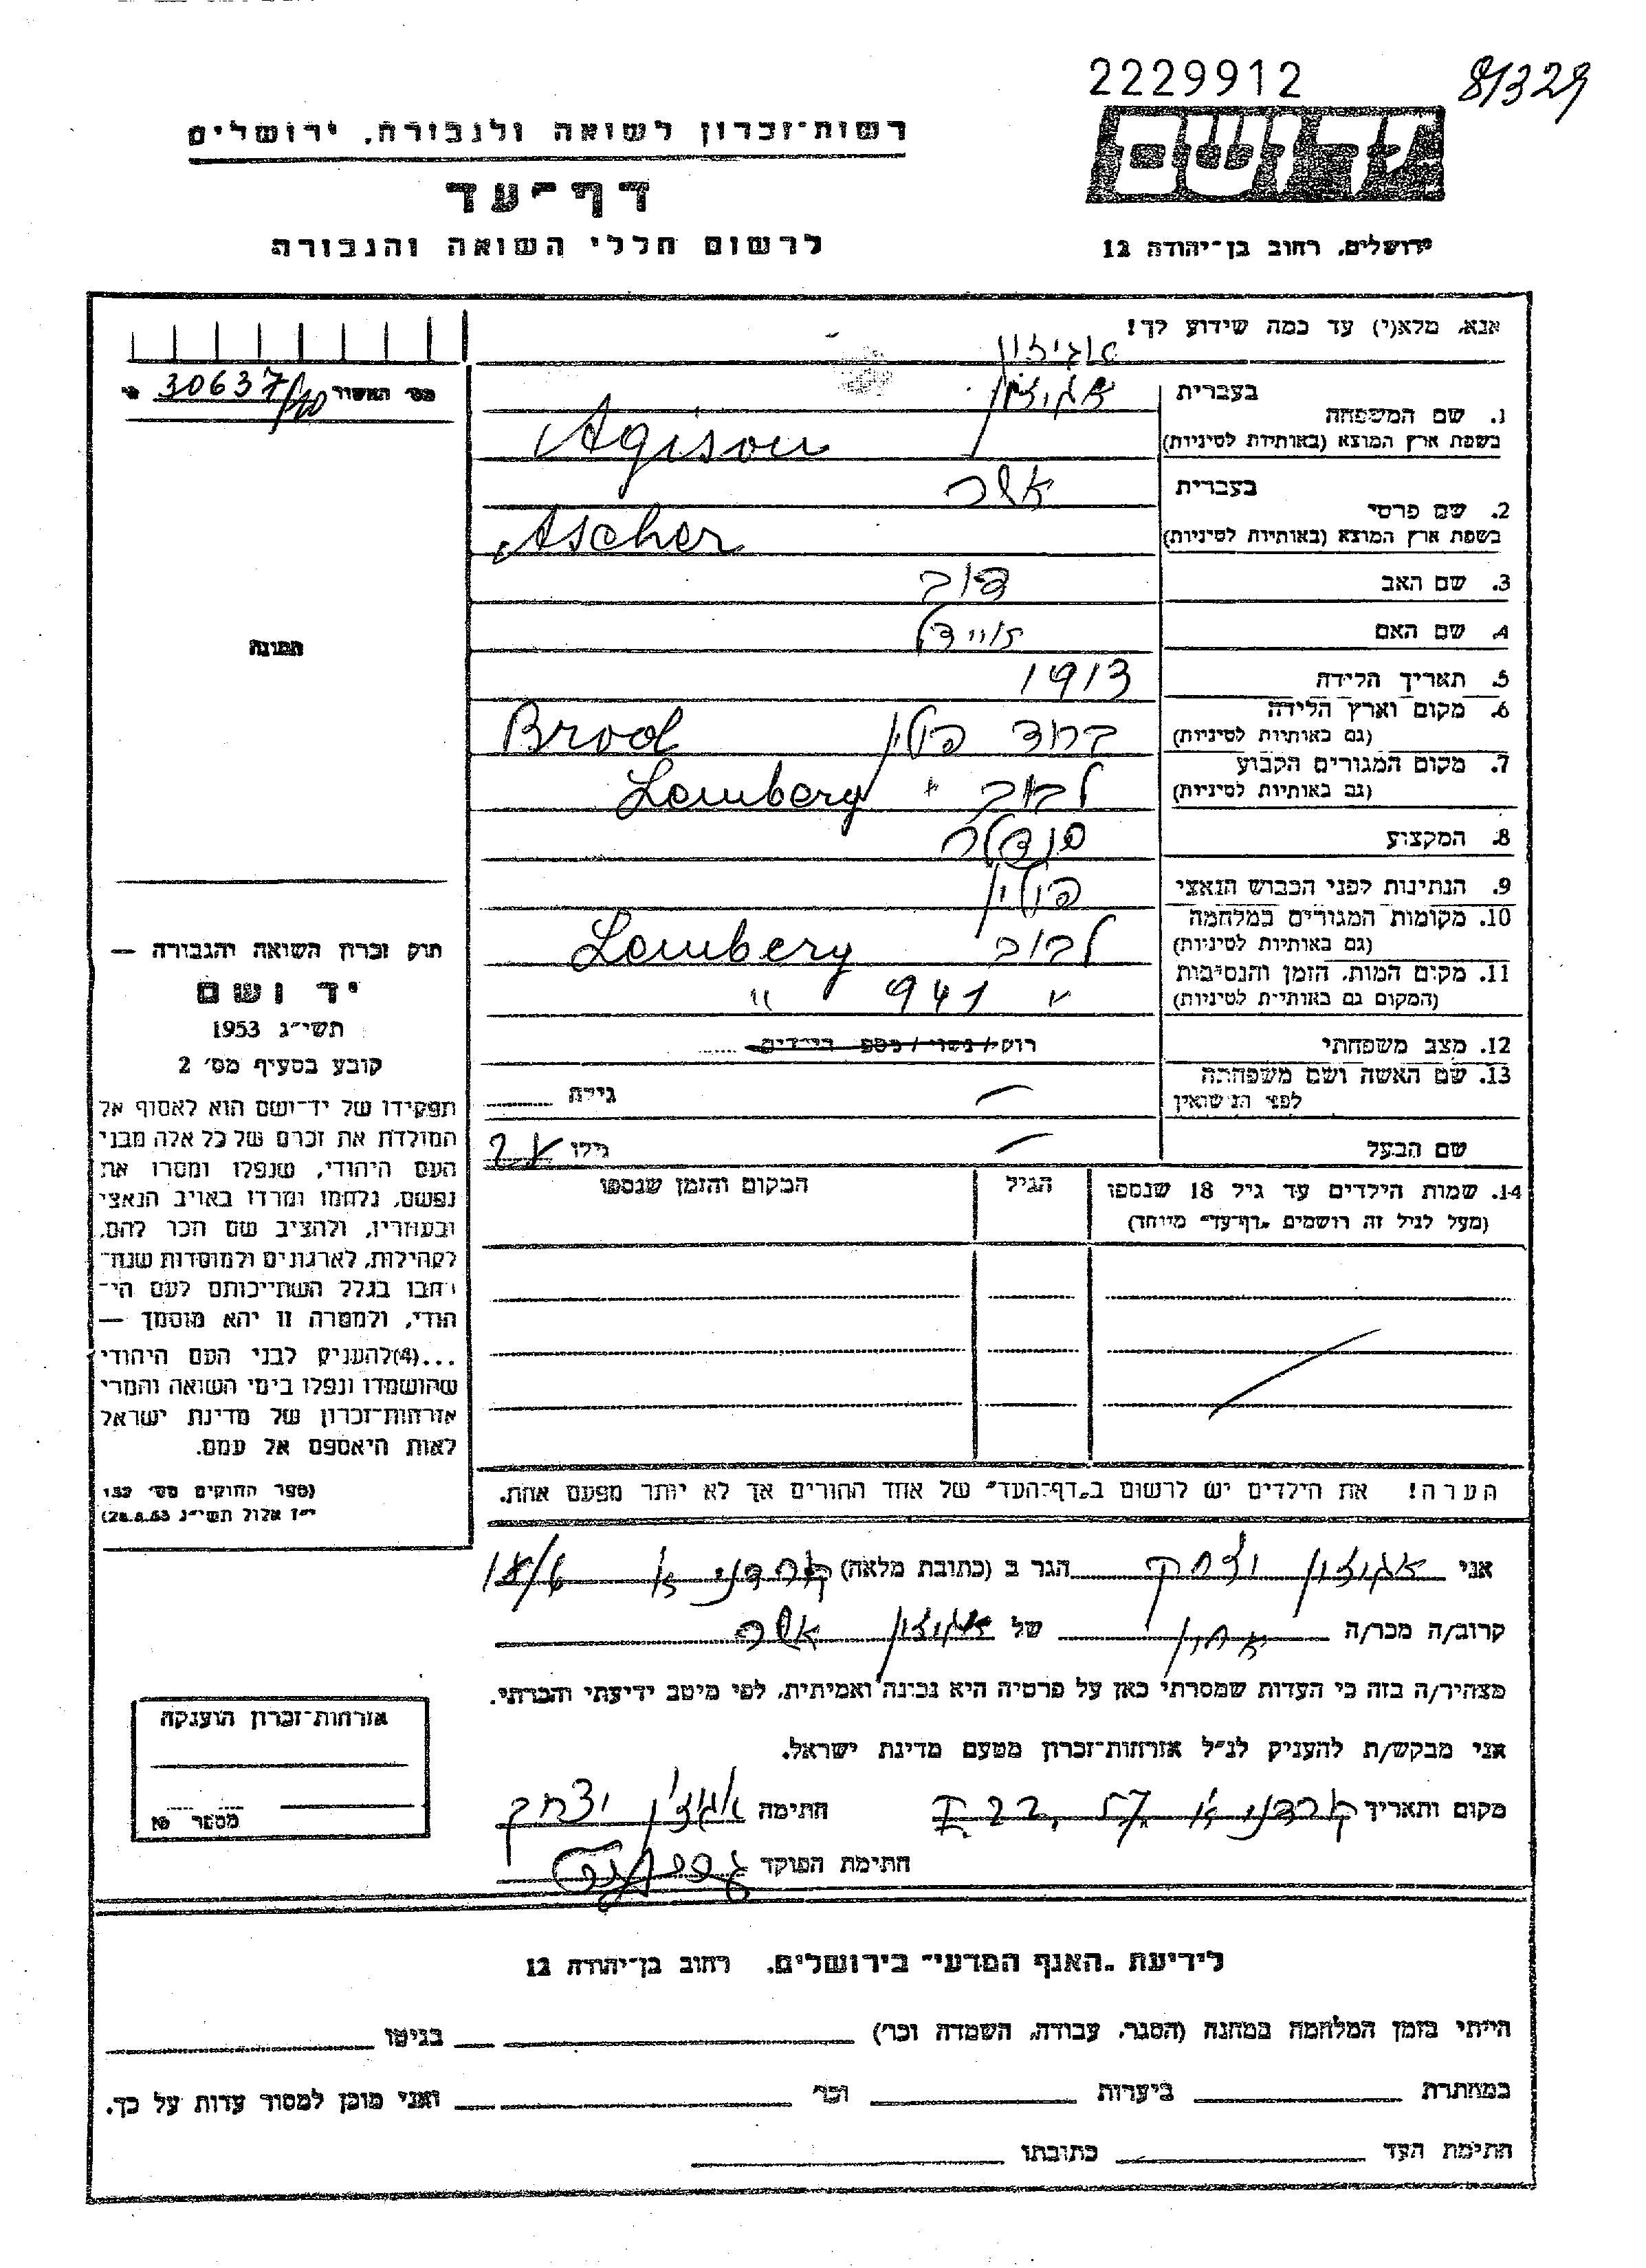 2229912
81329
רשות־זכרון לשואה ולגבורה, ירושלים
יד ושם
דף־עד
לרשום חללי השואה והגבורה
ירושלים, רחוב בן־יהודה 12
אנא, מלא(י) עד כמה שידוע לך!
מס' האשור 30637/40
אגיזון
1. שם המשפחה בעברית אגיזון
בשפת ארץ המוצא (באותיות לטיניות) Agison
2. שם פרטי בעברית אשר
בשפת ארץ המוצא (באותיות לטיניות) Ascher
3. שם האב דוב
4. שם האם זיידל
5. תאריך הלידה 1913
6. מקום וארץ הלידה (גם באותיות לטיניות) ברוד פולין Brod
7. מקום המגורים הקבוע (גם באותיות לטיניות) לבוב Lemberg
8. המקצוע סנדלר
9. הנתינות לפני הכבוש הנאצי פולין
10. מקומות המגורים במלחמה (גם באותיות לטיניות) לבוב Lemberg
11. מקום המות, הזמן והנסיבות (המקום גם באותיות לטיניות) " 941 "
12. מצב משפחתי רווק/נשוי/מספר הילדים
13. שם האשה ושם משפחתה לפני הנישואין גילה
שם הבעל גילו 28
14. שמות הילדים עד גיל 18 שנספו הגיל המקום והזמן שנספו
(מעל לגיל זה רושמים "דף־עד" מיוחד)
הערה! את הילדים יש לרשום ב"דף־העד" של אחד ההורים אך לא יותר מפעם אחת.
תמונה
חוק זכרון השואה והגבורה —
יד ושם
תשי״ג 1953
קובע בסעיף מס׳ 2
תפקידו של יד־ושם הוא לאסוף אל
המולדת את זכרם של כל אלה מבני
העם היהודי, שנפלו ומסרו את
נפשם, נלחמו ומרדו באויב הנאצי
ובעוזריו, ולהציב שם וזכר להם,
לקהילות, לארגונים ולמוסדות שנח־
רבו בגלל השתייכותם לעם הי־
הודי, ולמטרה זו יהא מוסמך —
...(4) להעניק לבני העם היהודי
שהושמדו ונפלו בימי השואה והמרי
אזרחות־זכרון של מדינת ישראל
לאות היאספם אל עמם.
(ספר החוקים מס׳ 132
י״ז אלול תשי״ג 28.8.53)
אני אגיזון יצחק הגר ב (כתובת מלאה) קרדני א 18/6
קרוב/ה מכר/ה אחין של אגיזון אשר
מצהיר/ה בזה כי העדות שמסרתי כאן על פרטיה היא נכונה ואמיתית, לפי מיטב ידיעתי והכרתי.
אני מבקש/ת להעניק לנ״ל אזרחות־זכרון מטעם מדינת ישראל.
מקום ותאריך קרדני א חתימה אגיזון יצחק
חתימת הפוקד
אזרחות־זכרון הוענקה
מספר
לידיעת "האגף המדעי" בירושלים, רחוב בן־יהודה 12
הייתי בזמן המלחמה במחנה (הסגר, עבודה, השמדה וכו׳) בגיטו
במחתרת ביערות וכו׳ ואני מוכן למסור עדות על כך.
חתימת העד כתובתו